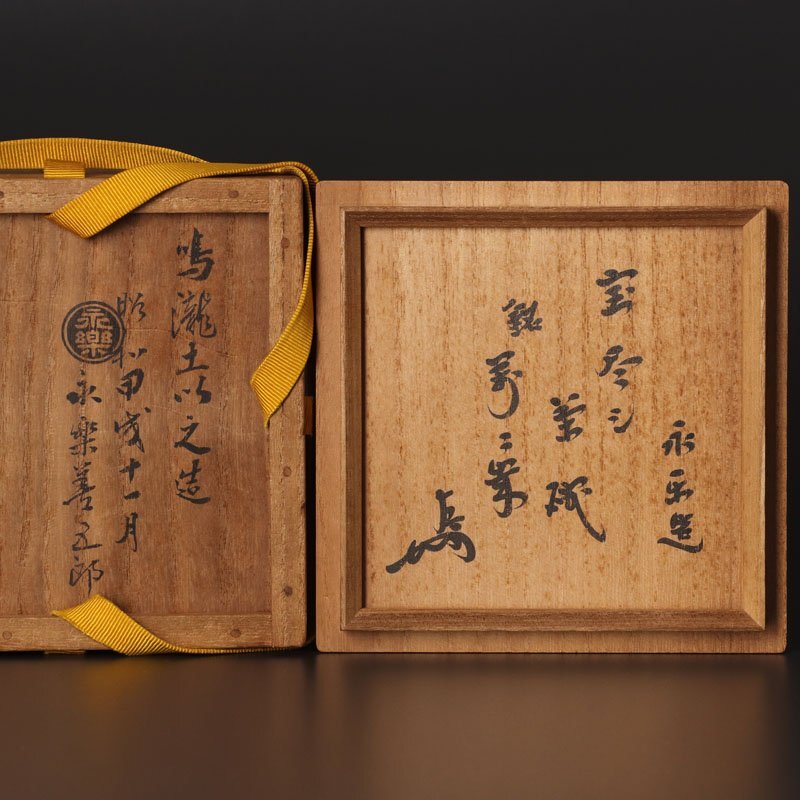 鳴瀧土以之造
昭和甲戌十一月
永樂善五郎
永樂
永楽造
宝尽シ
茶碗
銘